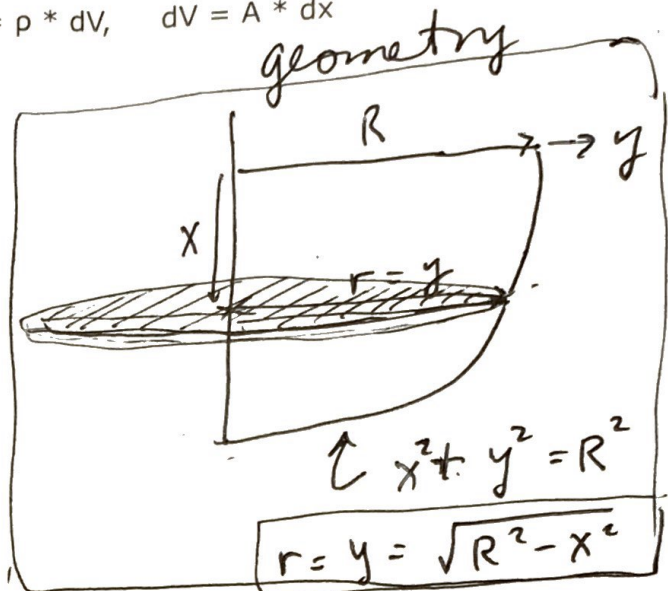 = p * dV, dV = A * dx
geometry
R
→ y
x
r = y
x² + y² = R²
r = y = √R² - x²